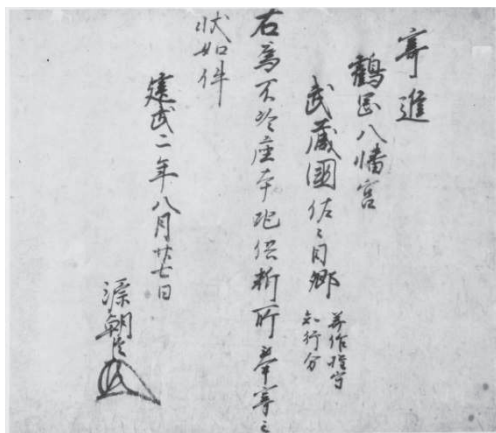 寄進
鶴岡八幡宮
武蔵國佐々目郷 美作権守
知行分
右為不冷座本地供料所奉寄之
状如件
建武二年八月廿七日
源朝臣